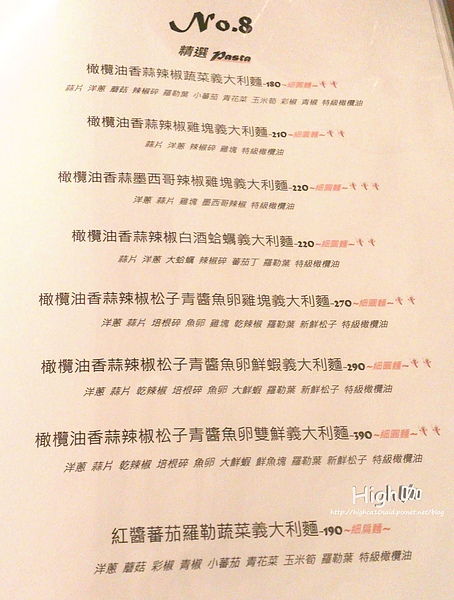 No.8
精選 Pasta
橄欖油香蒜辣椒蔬菜義大利麵-180~細圓麵~
蒜片 洋蔥 蘑菇 辣椒碎 羅勒葉 小蕃茄 青花菜 玉米筍 彩椒 青椒 特級橄欖油
橄欖油香蒜辣椒雞塊義大利麵-210~細圓麵~
蒜片 洋蔥 辣椒碎 雞塊 特級橄欖油
橄欖油香蒜墨西哥辣椒雞塊義大利麵-220~細圓麵~
洋蔥 蒜片 雞塊 墨西哥辣椒 特級橄欖油
橄欖油香蒜辣椒白酒蛤蠣義大利麵-220~細圓麵~
蒜片 洋蔥 大蛤蠣 辣椒碎 蕃茄丁 羅勒葉 特級橄欖油
橄欖油香蒜辣椒松子青醬魚卵雞塊義大利麵-270~細圓麵~
洋蔥 蒜片 培根碎 魚卵 雞塊 乾辣椒 羅勒葉 新鮮松子 特級橄欖油
橄欖油香蒜辣椒松子青醬魚卵鮮蝦義大利麵-290~細圓麵~
洋蔥 蒜片 乾辣椒 培根碎 魚卵 大鮮蝦 羅勒葉 新鮮松子 特級橄欖油
橄欖油香蒜辣椒松子青醬魚卵雙鮮義大利麵-390~細圓麵~
洋蔥 蒜片 乾辣椒 培根碎 魚卵 大鮮蝦 鮮魚塊 羅勒葉 新鮮松子 特級橄欖油
High咖
http://highcat1haid.pixnet.net/blog
紅醬蕃茄羅勒蔬菜義大利麵-190~細扁麵~
洋蔥 蘑菇 彩椒 青椒 小蕃茄 青花菜 玉米筍 羅勒葉 特級橄欖油